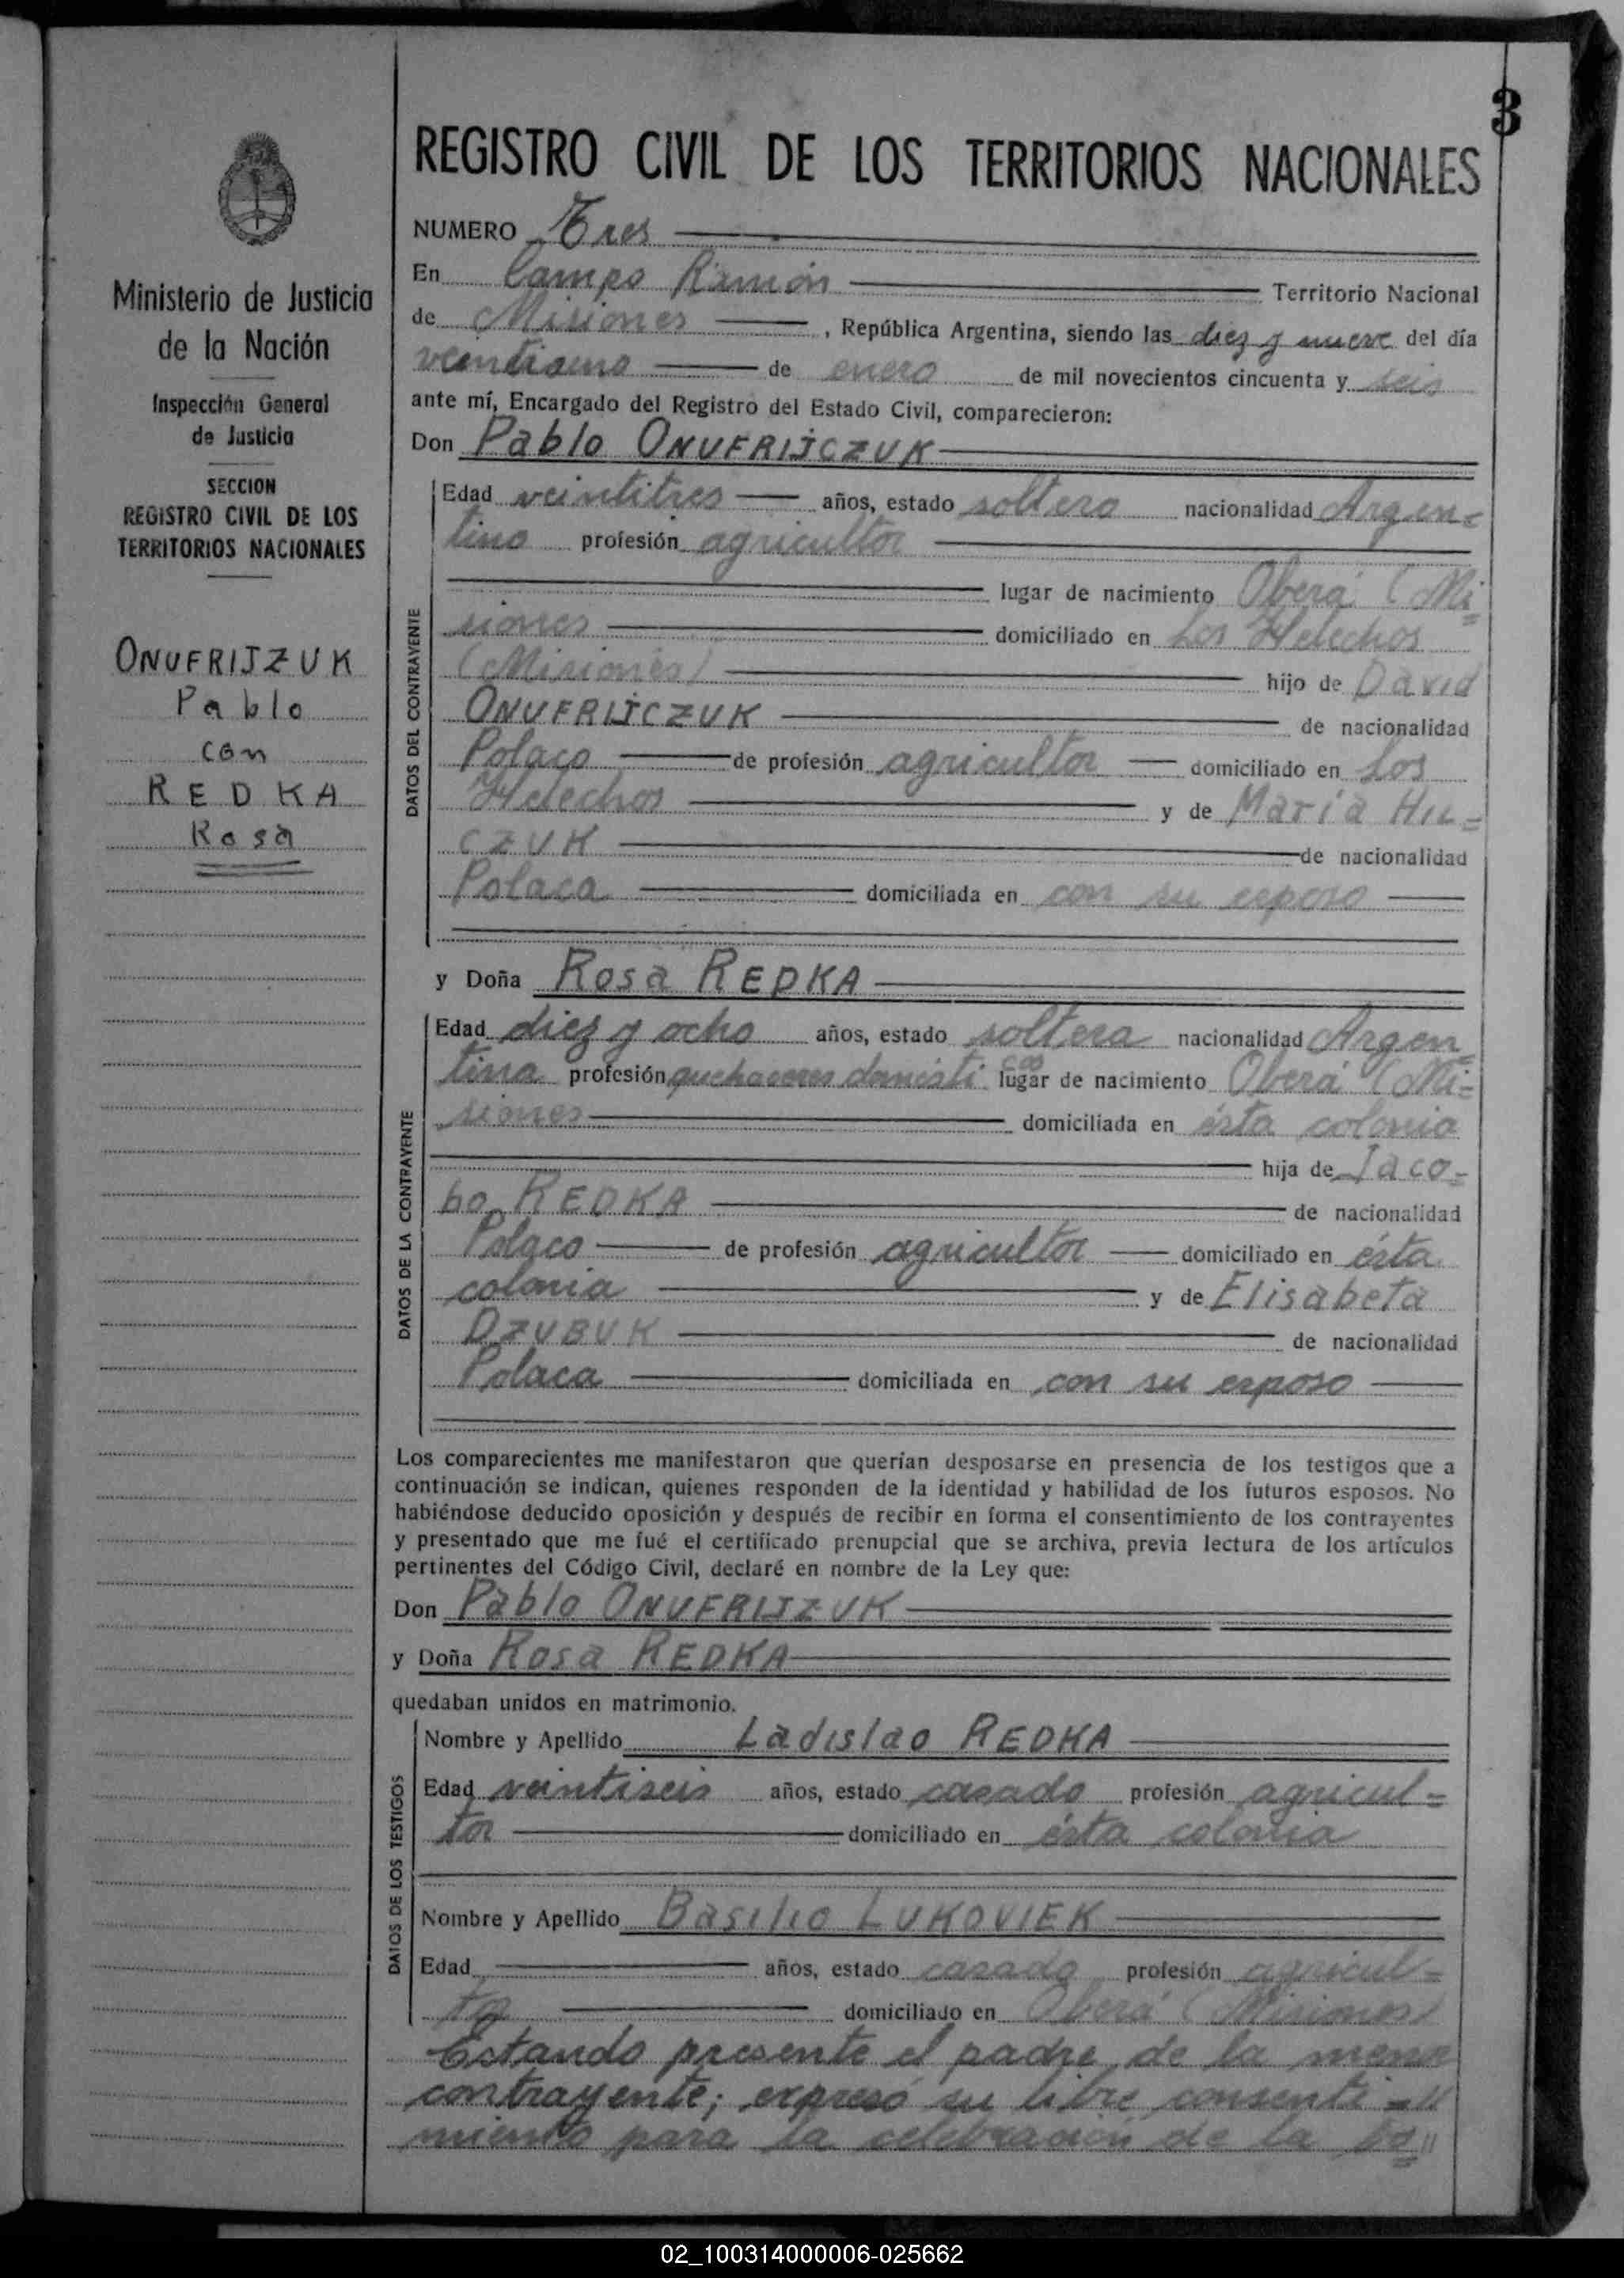 3
REGISTRO CIVIL DE LOS TERRITORIOS NACIONALES
Ministerio de Justicia
de la Nación
Inspección General
de Justicia
SECCION
REGISTRO CIVIL DE LOS
TERRITORIOS NACIONALES
ONUFRIJZUK
Pablo
con
REDKA
Rosa
NUMERO Tres
En Campo Ramón Territorio Nacional
de Misiones , República Argentina, siendo las diez y nueve del día
veintiuno de enero de mil novecientos cincuenta y seis
ante mí, Encargado del Registro del Estado Civil, comparecieron:
Don Pablo ONUFRIJCZUK
DATOS DEL CONTRAYENTE
Edad veintitres años, estado soltero nacionalidad Argen=
tino profesión agricultor
lugar de nacimiento Oberá (Mi=
siones domiciliado en Los Helechos
(Misiones) hijo de David
ONUFRIJCZUK de nacionalidad
Polaco de profesión agricultor domiciliado en Los
Helechos y de María HU=
CZUK de nacionalidad
Polaca domiciliada en con su esposo
y Doña Rosa REDKA
DATOS DE LA CONTRAYENTE
Edad diez y ocho años, estado soltera nacionalidad Argen=
tina profesión quehaceres domésti cos lugar de nacimiento Oberá (Mi=
siones domiciliada en ésta colonia
hija de Jaco=
bo REDKA de nacionalidad
Polaco de profesión agricultor domiciliado en ésta
colonia y de Elisabeta
DZUBUK de nacionalidad
Polaca domiciliada en con su esposo
Los comparecientes me manifestaron que querían desposarse en presencia de los testigos que a
continuación se indican, quienes responden de la identidad y habilidad de los futuros esposos. No
habiéndose deducido oposición y después de recibir en forma el consentimiento de los contrayentes
y presentado que me fué el certificado prenupcial que se archiva, previa lectura de los artículos
pertinentes del Código Civil, declaré en nombre de la Ley que:
Don Pablo ONUFRIJZUK
y Doña Rosa REDKA
quedaban unidos en matrimonio.
DATOS DE LOS TESTIGOS
Nombre y Apellido Ladislao REDKA
Edad veintiseis años, estado casado profesión agricul=
tor domiciliado en ésta colonia
Nombre y Apellido Basilio LUKOVIEK
Edad años, estado casado profesión agricul=
tor domiciliado en Oberá (Misiones)
Estando presente el padre de la menor
contrayente; expresó su libre consenti=//
miento para la celebración de la bo//
02_100314000006-025662